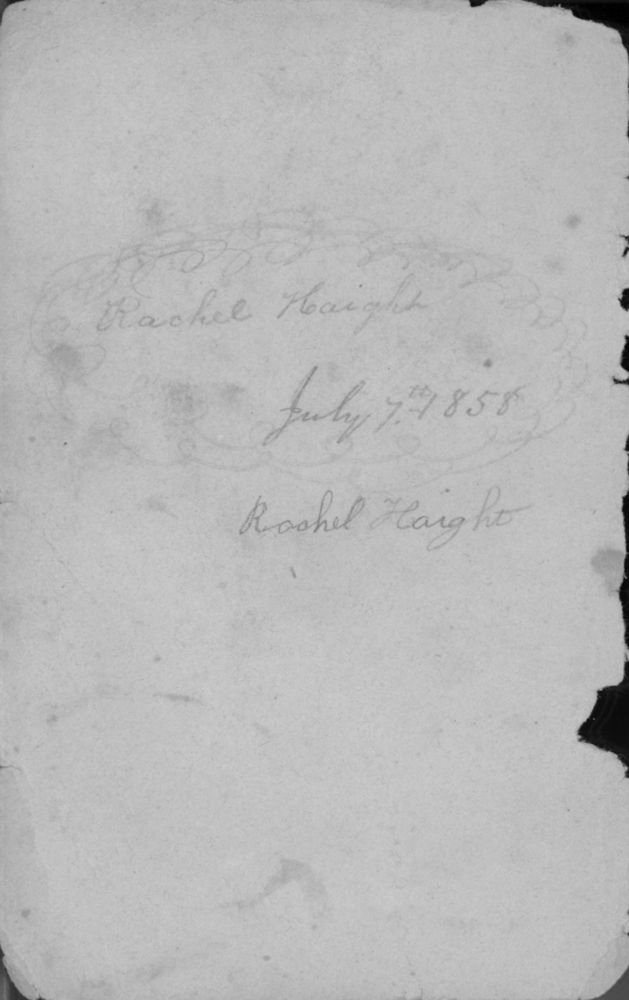 Rachel Haight
July 7.th 1858
Rachel Haight